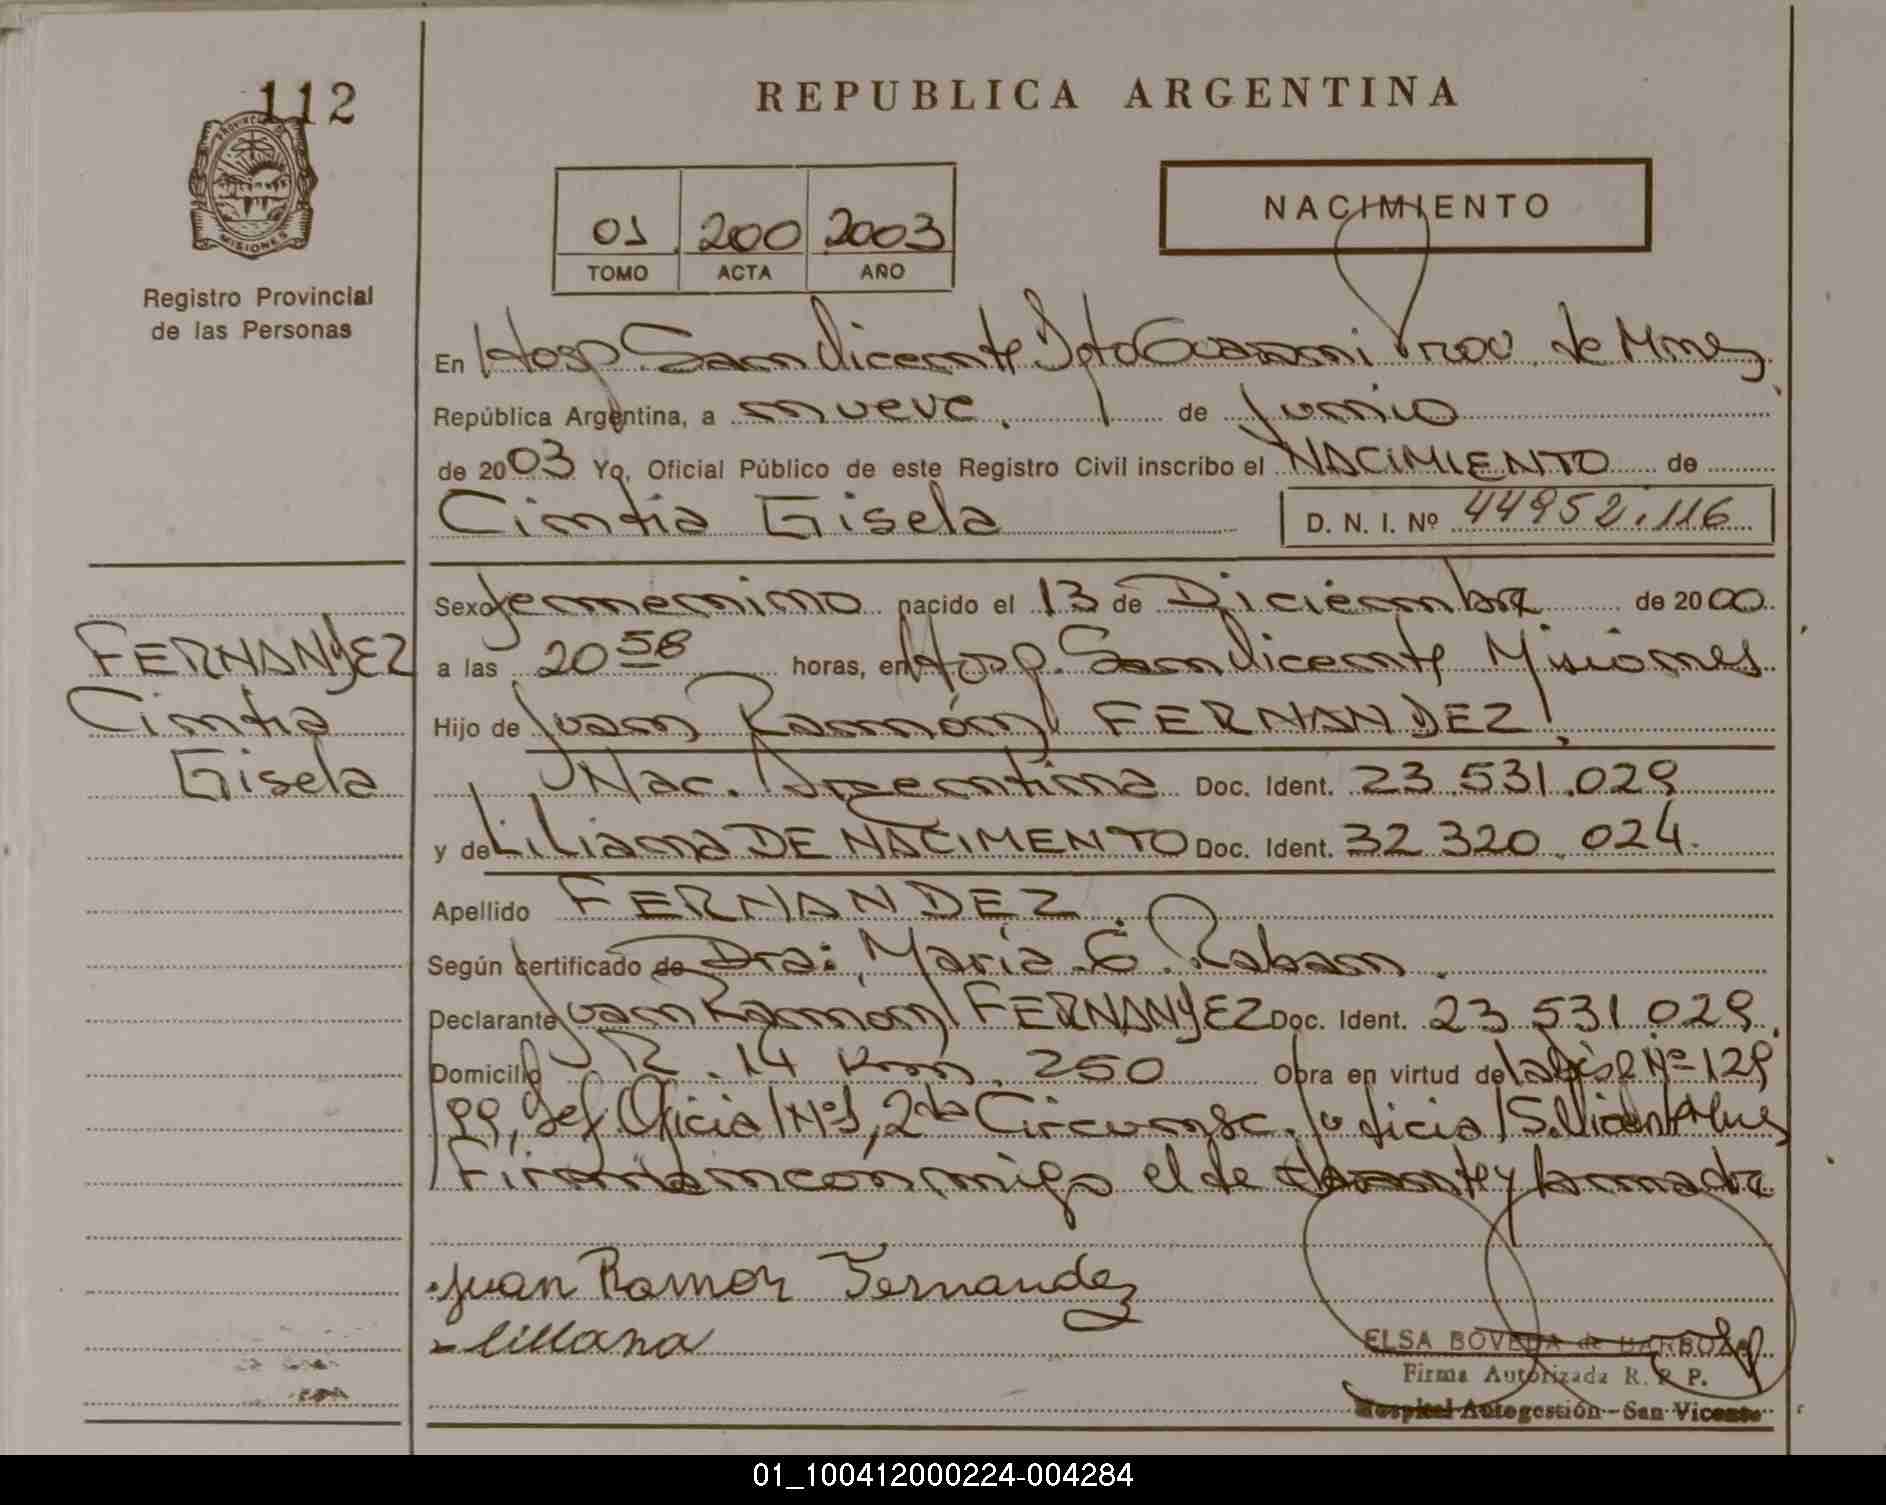 112
PROVINCIA DE
MISIONES
Registro Provincial
de las Personas
REPUBLICA ARGENTINA
01 200 2003
TOMO ACTA AÑO
NACIMIENTO
En Hosp San Vicente Dpto Guarani Prov. de Mnes
República Argentina, a nueve de Junio
de 2003 Yo, Oficial Público de este Registro Civil inscribo el NACIMIENTO de
Cintia Gisela D. N. I. Nº 44952.116
FERNANDEZ
Cintia
Gisela
Sexo femenino nacido el 13 de Diciembre de 2000
a las 20 58 horas, en Hosp. San Vicente Misiones
Hijo de Juan Ramón FERNANDEZ
Nac. Argentina Doc. Ident. 23.531.029
y de Liliana DE NACIMENTO Doc. Ident. 32 320.024.
Apellido FERNANDEZ.
Según certificado de Dra: María E. Raban.
Declarante Juan Ramón FERNANDEZ Doc. Ident. 23.531.029.
Domicilio R. 14 Km. 250 Obra en virtud de la Nº 129
99, Def Oficial Nº1, 2da Circunsc. Judicial S. Vicente Mnes
Firman conmigo el declarante y la madre
Juan Ramon Fernandez
- liliana
ELSA BOVEDA de BARBOZA
Firma Autorizada R. P. P.
Hospital Autogestión - San Vicente
01_100412000224-004284